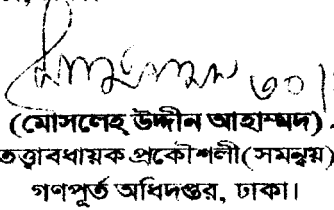 ৩০/
(মোসলেহ্ উদ্দীন আহাম্মদ)
তত্ত্বাবধায়ক প্রকৌশলী(সমন্বয়)
গণপূর্ত অধিদপ্তর, ঢাকা।